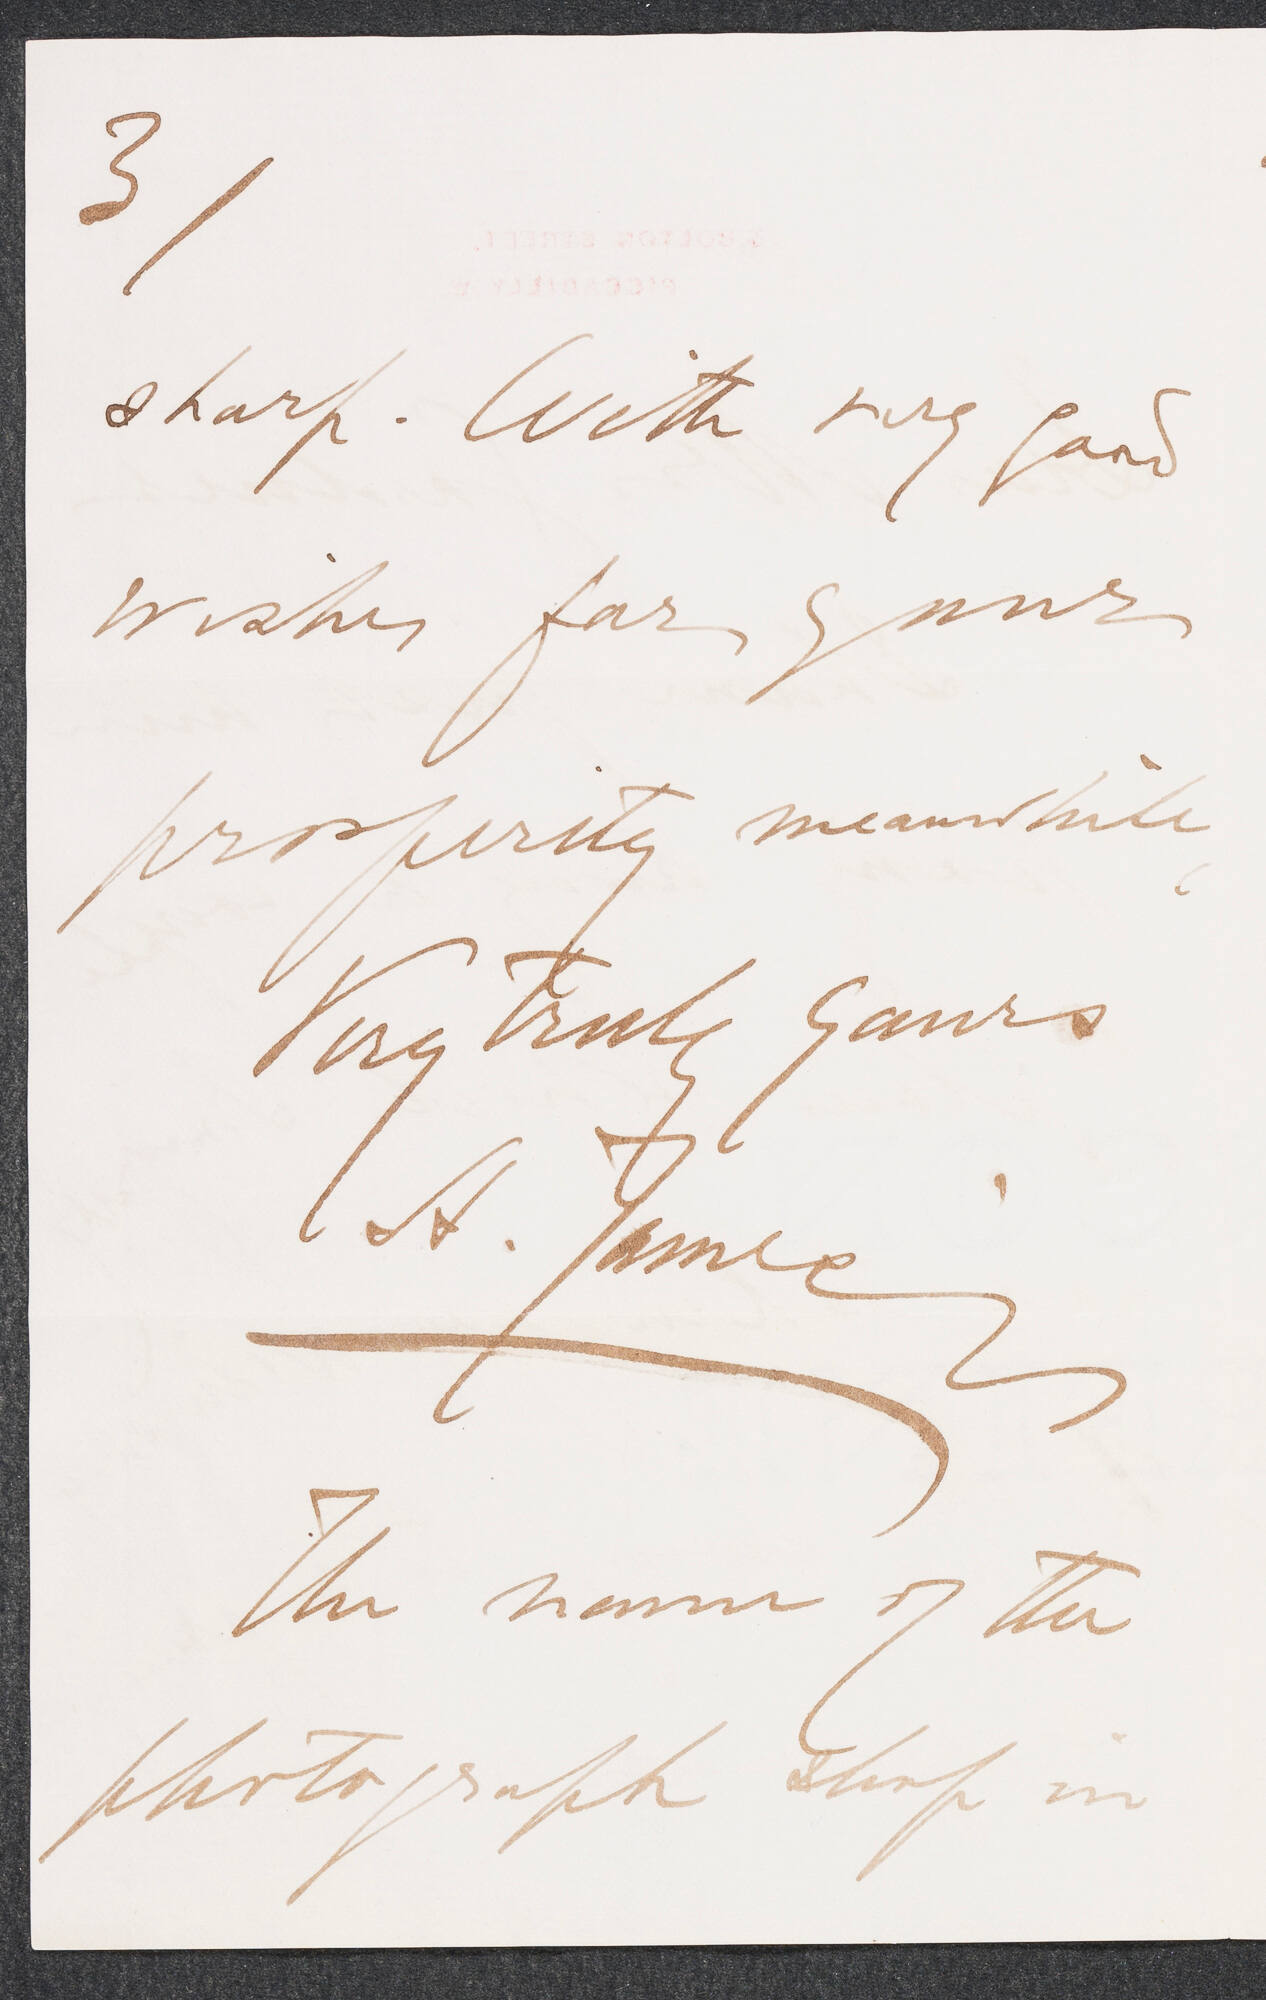 3/
sharp. With very good
wishes for your
prosperity meanwhile,
Very truly yours
H. James
The name of the
photograph shop in